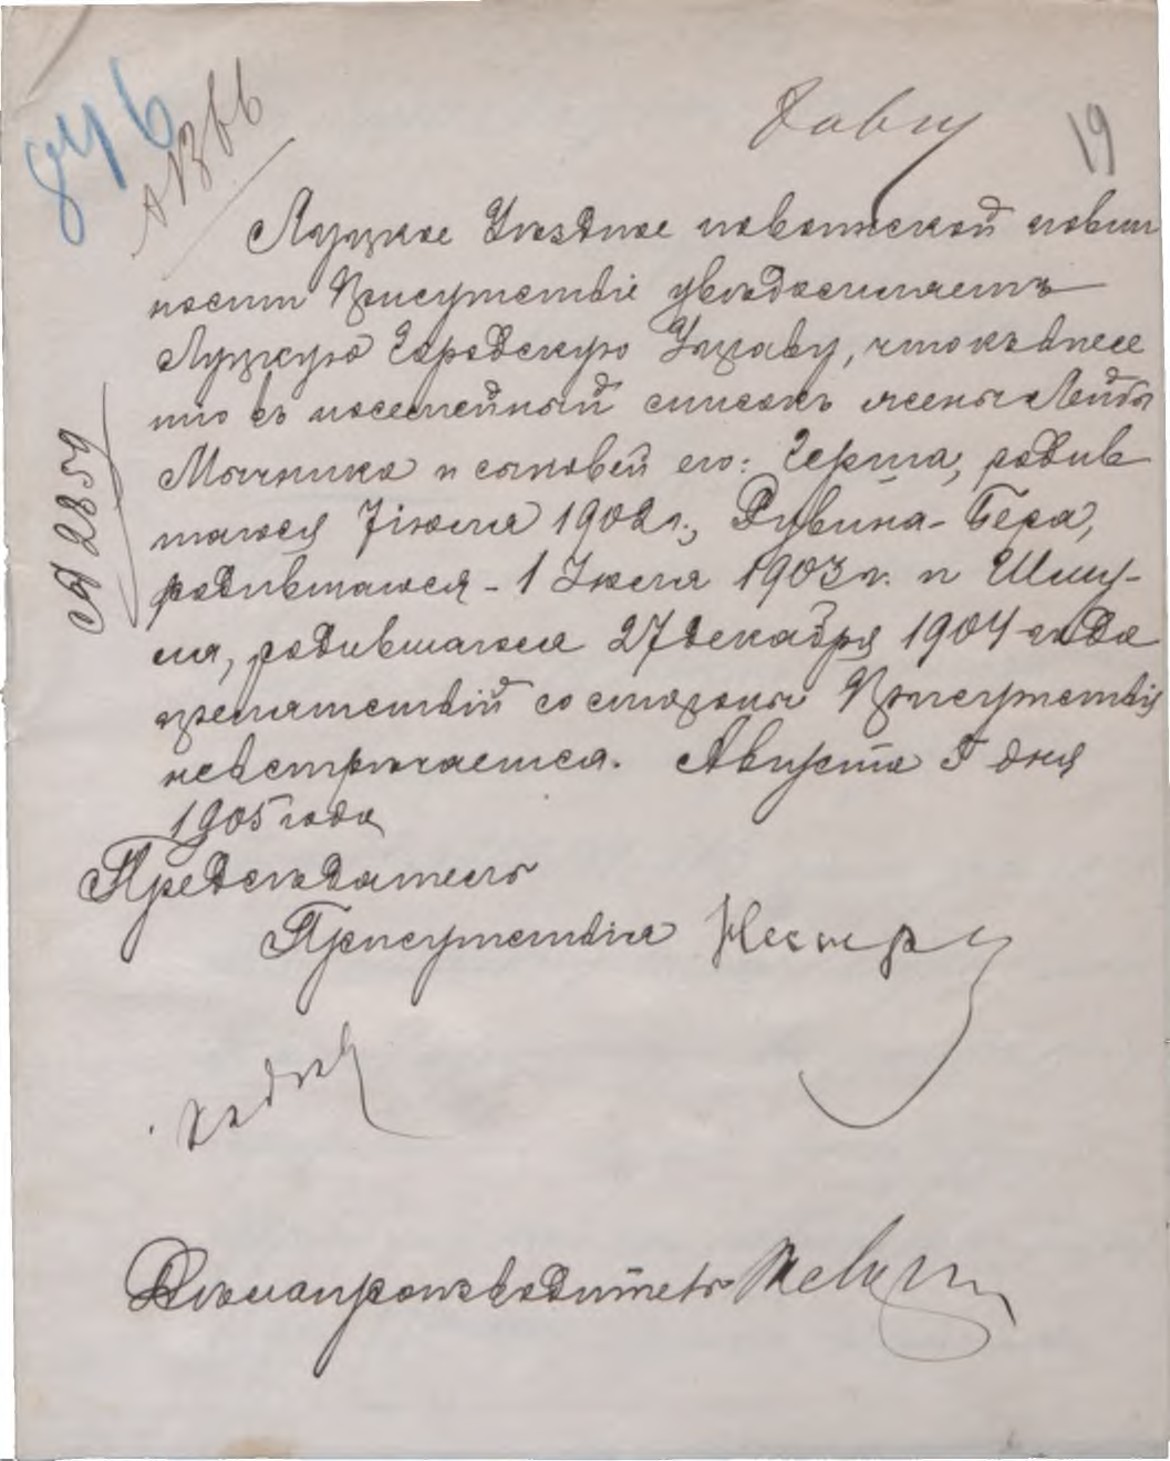 846
19
Луцкое Уѣздное по воинской повин
ности Присутствіе увѣдомляетъ
Луцкую Городскую Управу, что къ внесе
нію въ посемейный списокъ жены Лейбы
Мычника и сыновей его: Герша, родив
шагося 7 іюля 1902 г., Рувина-Бера,
родившагося - 1 Іюля 1903 г. и Шму-
ля, родившагося 27 декабря 1904 года
препятствій со стороны Присутствія
невстрѣчается. Августа 5 дня
1905 года
№ 2859
Предсѣдатель
Присутствія
Дѣлопроизводитель